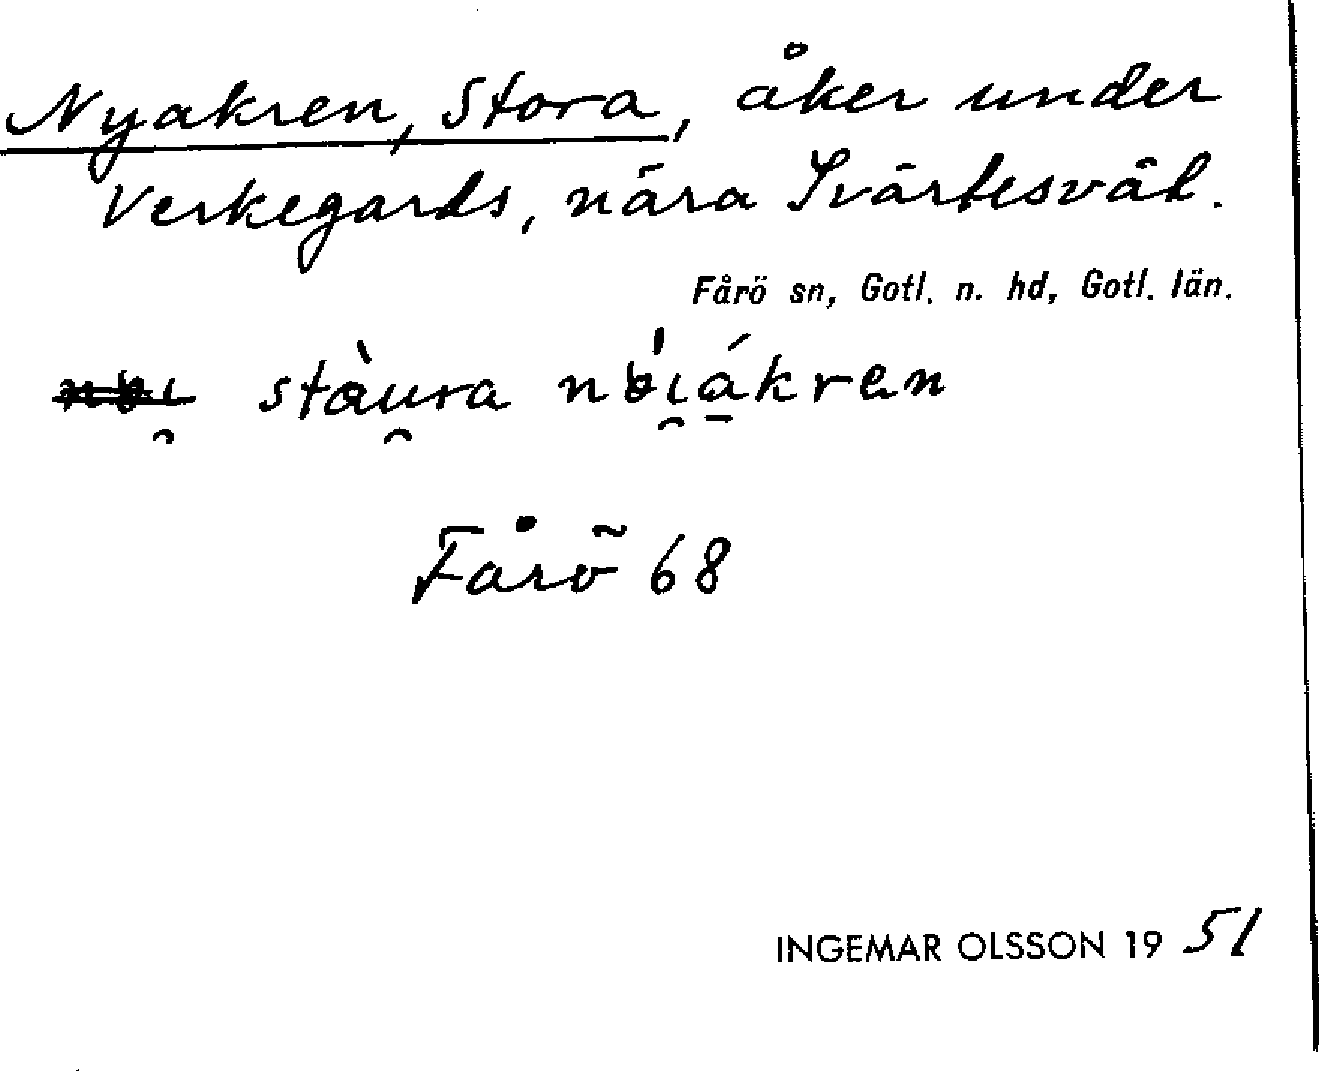 Nyakren, Stora, åker under
Verkegards, nära Svärtesväl.
Fårö sn, Gotl. n. hd, Gotl. län.
stàu̯ra nɵ́i̯á̱kren
Fårö 68
INGEMAR OLSSON 19 51